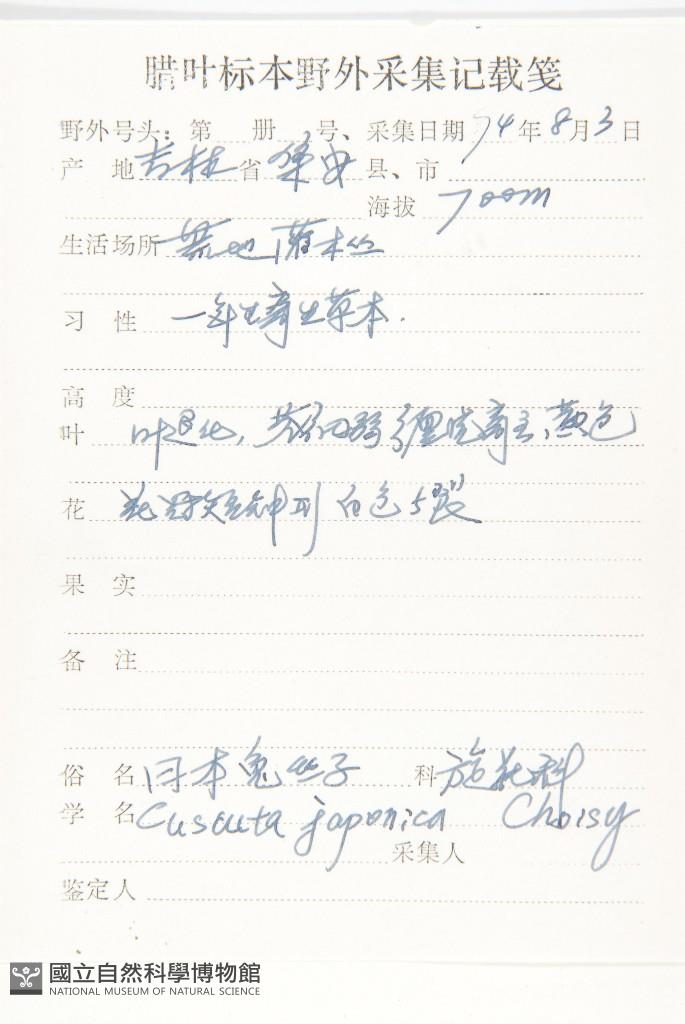 腊叶标本野外采集记载笺
野外号头：第 册 号、采集日期 74年8月3日
产 地 吉林省 集安 县、市
海拔 700m
生活场所 荒地 灌木丛
习 性 一年生寄生草本.
高 度
叶 叶退化, 缠绕寄主, 黄色
花 花 短钟形 白色 5裂
果 实
备 注
俗 名 日本菟丝子 科 旋花科
学 名 Cuscuta japonica Choisy
采集人
鉴定人
國立自然科學博物館
NATIONAL MUSEUM OF NATURAL SCIENCE